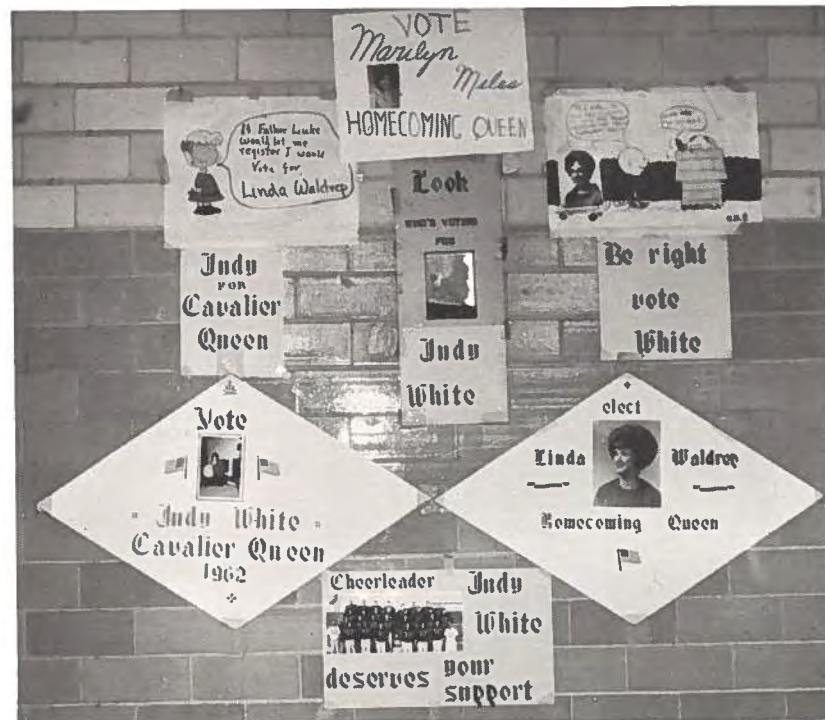 VOTE
Marilyn
Miles
HOMECOMING QUEEN
If Father Luke
would let me
register I would
Vote for
Linda Waldrop
Look
WHO'S VOTING
FOR
Judy
White
Judy
FOR
Cavalier
Queen
Be right
vote
White
Vote
Judy White
Cavalier Queen
1962
elect
Linda Waldrop
Homecoming Queen
Cheerleader Judy
White
deserves your
support